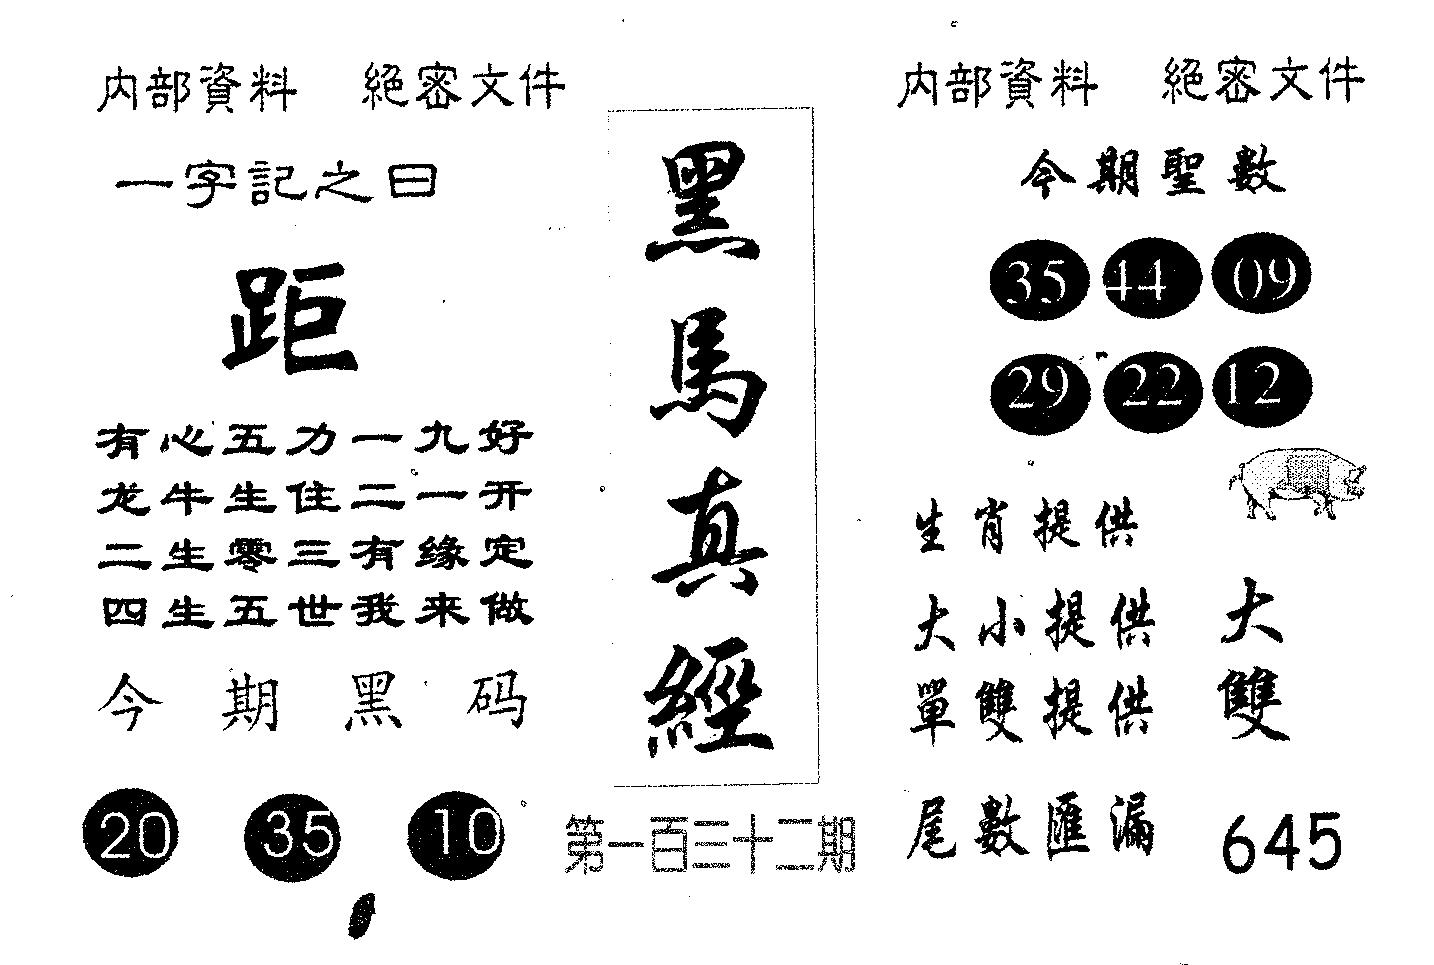 内部資料 絕密文件
一字記之曰
距
有心五力一九好
龙牛生住二一开
二生零三有缘定
四生五世我来做
今期黑码
20 35 10
黑馬真經
第一百三十二期
内部資料 絕密文件
今期聖數
35 44 09
29 22 12
生肖提供
大小提供 大
單雙提供 雙
尾數匯漏 645